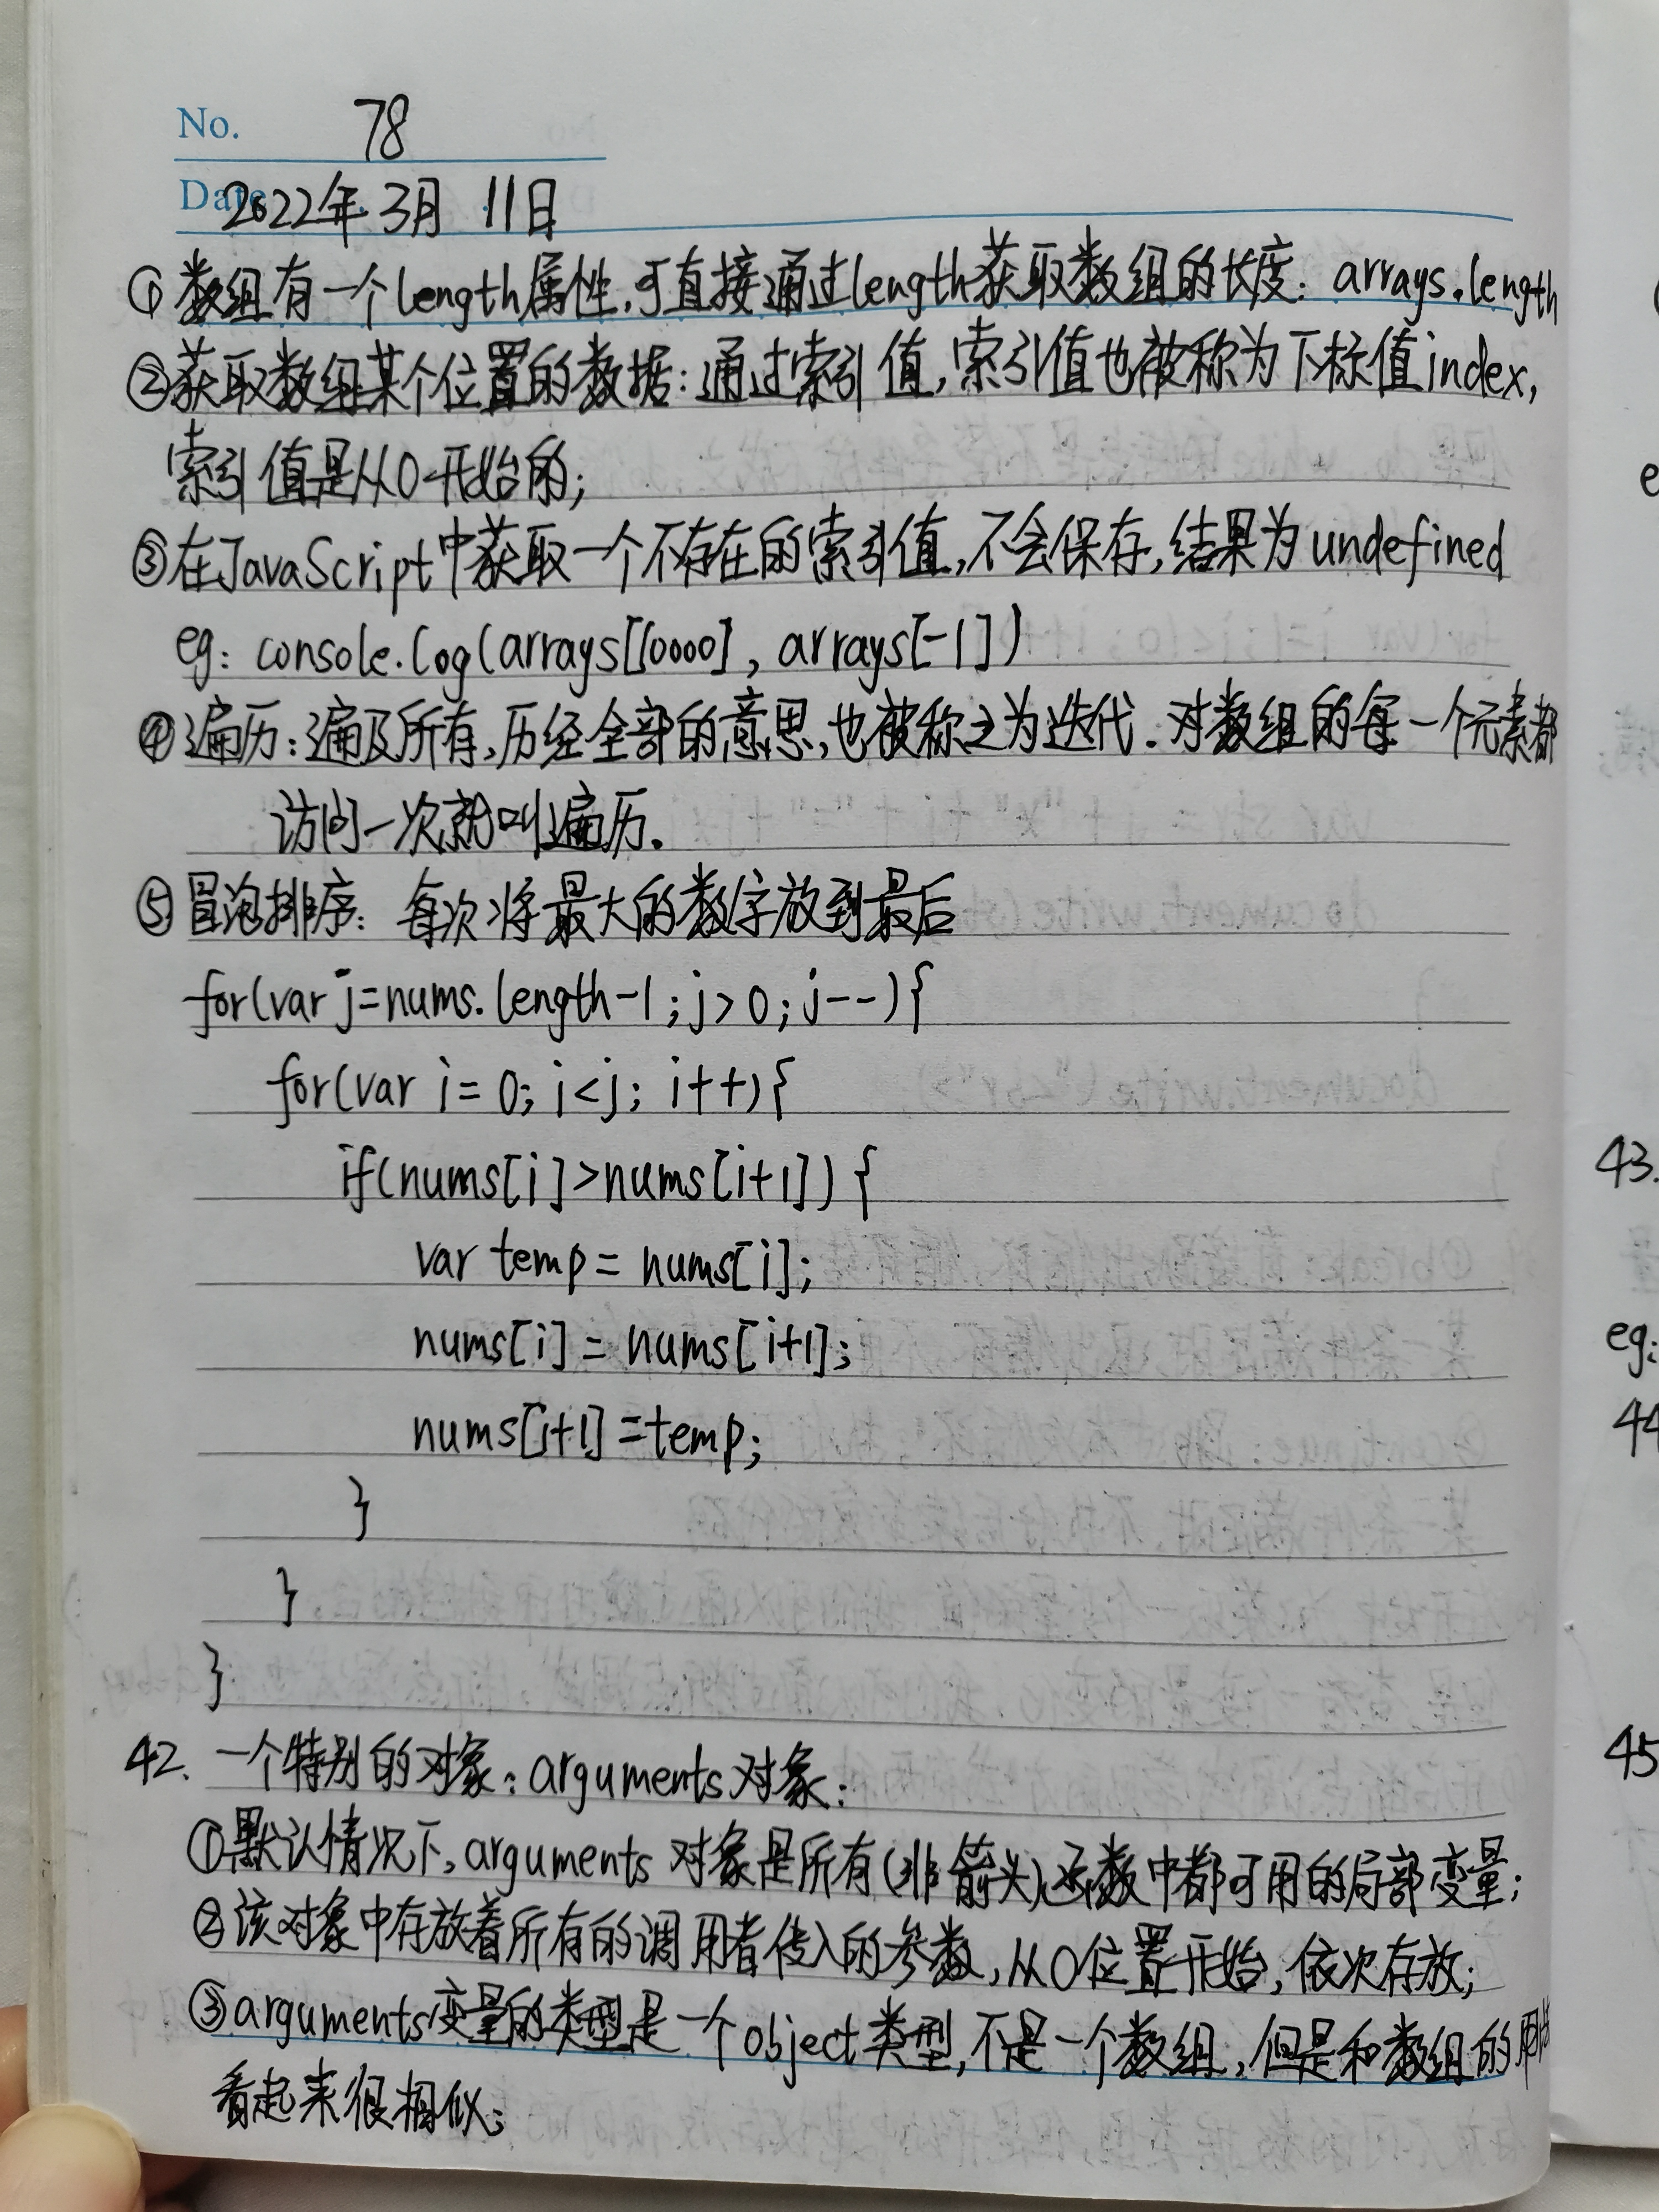 No. 78
Date 2022年3月11日
①数组有一个length属性,可直接通过length获取数组的长度: arrays.length
②获取数组某个位置的数据:通过索引值,索引值也被称为下标值index,
索引值是从0开始的;
③在JavaScript中获取一个不存在的索引值,不会保存,结果为undefined
eg: console.log(arrays[10000], arrays[-1])
④遍历:遍及所有,历经全部的意思,也被称之为迭代.对数组的每一个元素都
访问一次就叫遍历.
⑤冒泡排序: 每次将最大的数字放到最后
for(var j=nums.length-1;j>0;j--){
for(var i=0;i<j;i++){
if(nums[i]>nums[i+1]) {
var temp = nums[i];
nums[i] = nums[i+1];
nums[i+1] =temp;
}
}
}
42. 一个特别的对象: arguments对象:
①默认情况下, arguments 对象是所有(非箭头)函数中都可用的局部变量;
②该对象中存放着所有的调用者传入的参数,从0位置开始,依次存放;
③arguments变量的类型是一个object类型,不是一个数组,但是和数组的用法
看起来很相似;
43.
eg:
44
45